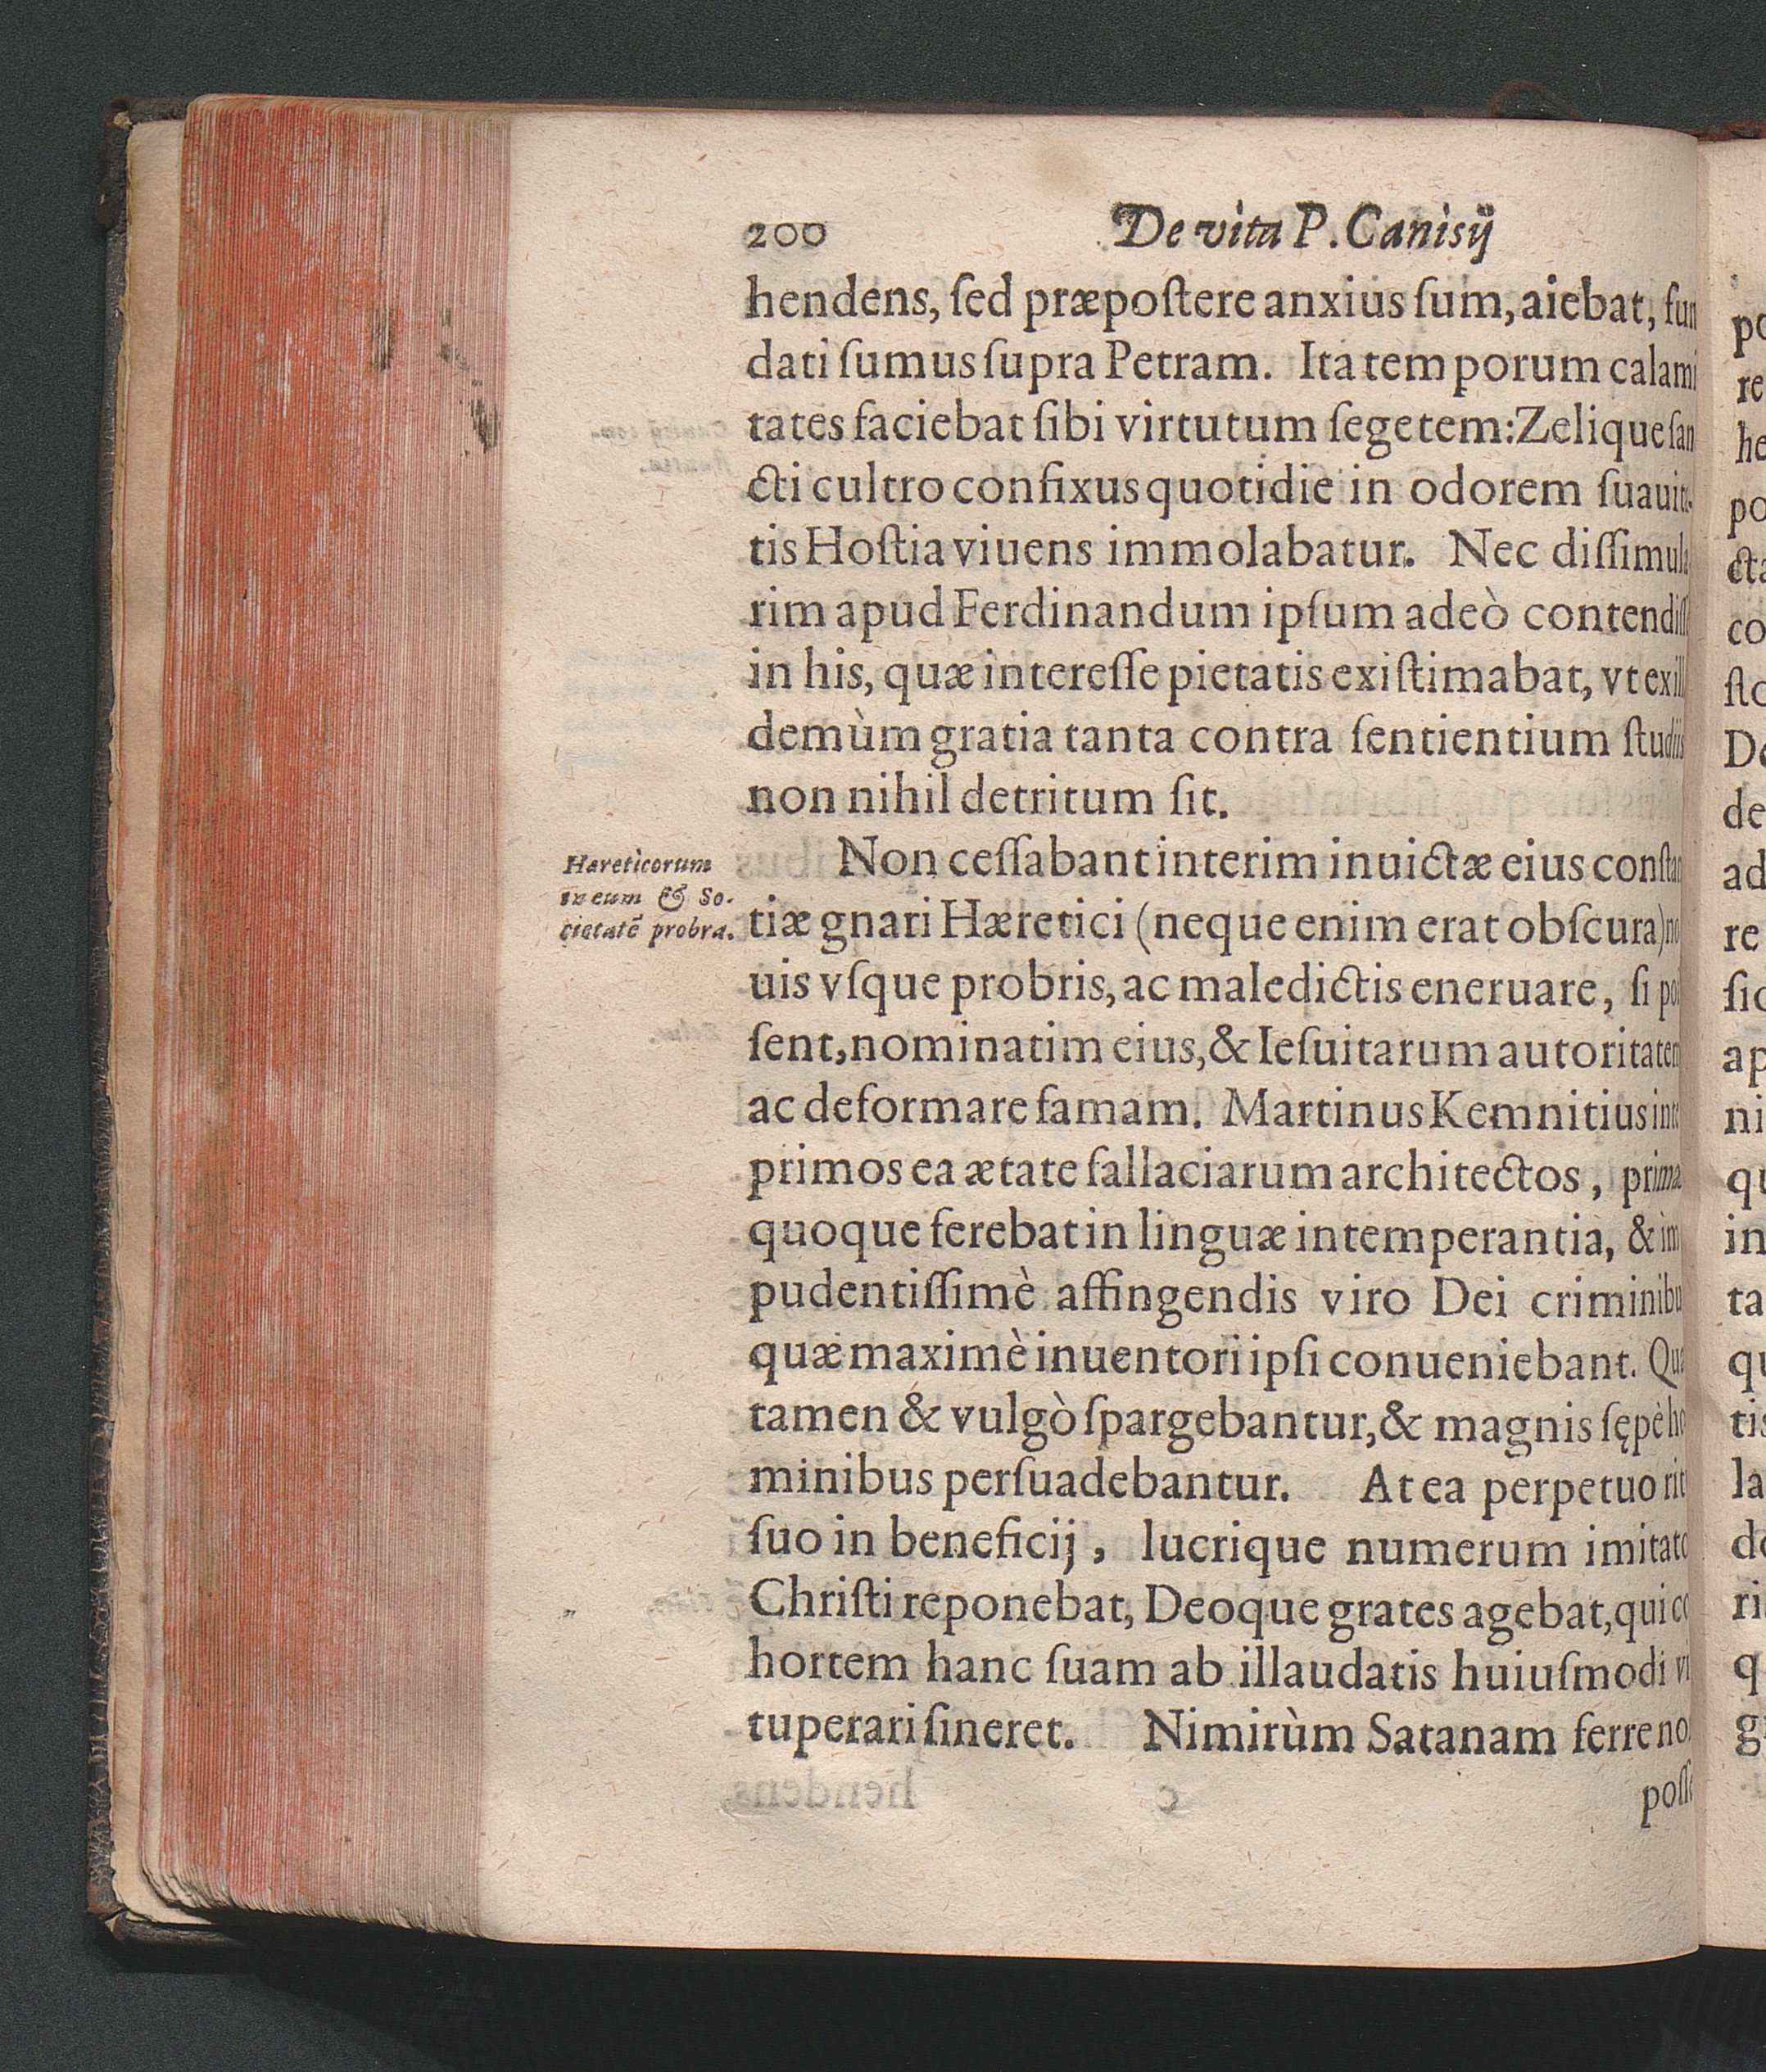 200 De vita P. Canisij
hendens, ſed præpoſtere anxius ſum, aiebat, fun
dati ſumus ſupra Petram. Ita temporum calami
tates faciebat ſibi virtutum ſegetem: Zelique ſan
cti cultro confixus quotidie in odorem
tis Hoſtia viuens immolabatur. Nec diſſimula
rim apud Ferdinandum ipſum adeò
in his, quæ intereſſe pietatis exiſtimabat, vt ex
demùm gratia tanta contra ſentientium ſtudiis
non nihil detritum ſit.
Non ceſſabant interim inuictæ eius
tiæ gnari Hæretici (neque enim erat obſcura) no
uis vſque probris, ac maledictis eneruare, ſi
ſent, nominatim eius, & Ieſuitarum autoritatem
ac deformare famam. Martinus Kemnitius
primos ea ætate fallaciarum architectos,
quoque ferebat in linguæ intemperantia, & im
pudentiſſimè affingendis viro Dei
quæ maximè inuentori ipſi conueniebant.
tamen & vulgò ſpargebantur, & magnis ſępè ho
minibus perſuadebantur. At ea perpetuo
ſuo in beneficij, lucrique numerum
Chriſti reponebat, Deoque grates agebat, qui co
hortem hanc ſuam ab illaudatis huiuſmodi vi
tuperari ſineret. Nimirùm Satanam ferre
Hæreticorum
in eum & So-
cietatē probra.